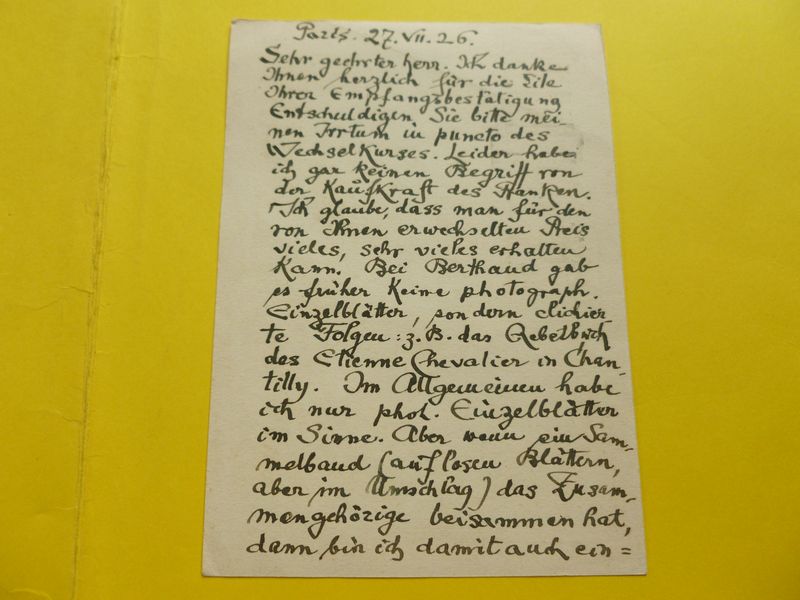 Paris. 27. VII. 26.
Sehr geehrter Herr. Ich danke
Ihnen herzlich für die Eile
Ihrer Empfangsbestätigung
Entschuldigen Sie bitte mei-
nen Irrtum in puncto des
Wechselkurses. Leider habe
ich gar keinen Begriff von
der Kaufkraft des Franken.
Ich glaube, dass man für den
von Ihnen erwechselten Preis
vieles, sehr vieles erhalten
kann. Bei Berthaud gab
es früher keine photograph.
Einzelblätter, sondern clichier
te Folgen: z. B. das Gebetbuch
des Etienne Chevalier in Chan-
tilly. Im Allgemeinen habe
ich nur phot. Einzelblätter
im Sinne. Aber wenn ein Sam-
melband (auf losen Blättern,
aber im Umschlag) das Zusam-
mengehörige beisammen hat,
dann bin ich damit auch ein=